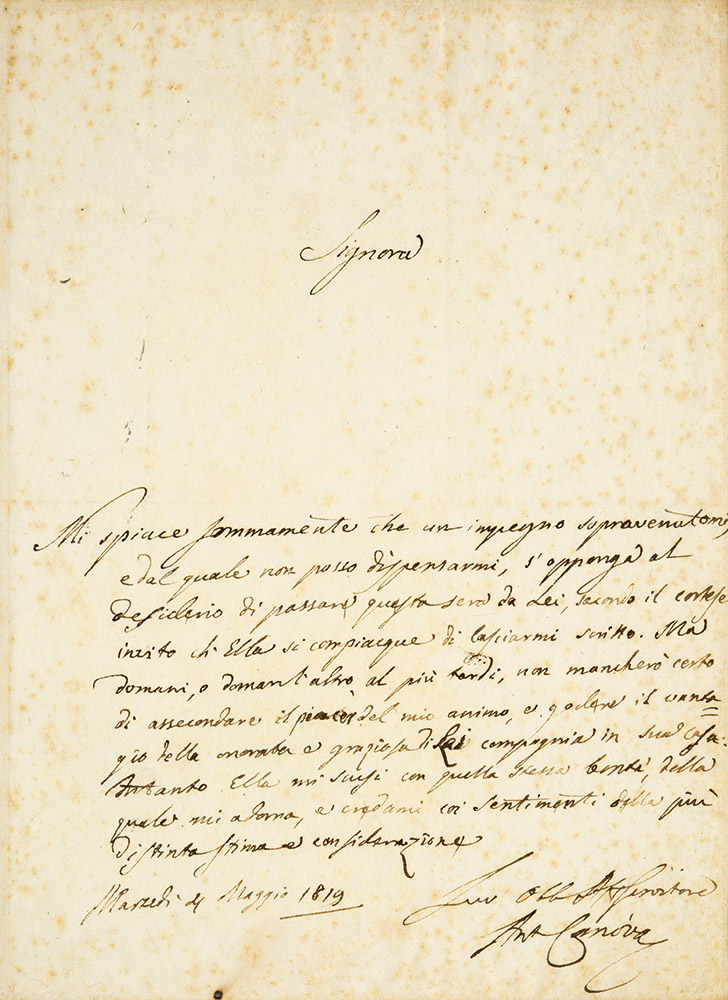 Signora
Mi spiace sommamente che un impegno sopravenutomi,
e dal quale non posso dispensarmi, s'opponga al
desiderio di passare questa sera da Lei, secondo il cortese
invito ch'Ella si compiacque di lasciarmi scritto. Ma
domani, o domani l'altro al più tardi, non mancherò certo
di assecondare il del mio animo, e godere il vanta=
gio della onorata e graziosa di Lei compagnia in sua casa.
Intanto Ella mi scusi con quella stessa bontà, della
quale mi adorna, e credami coi sentimenti della più
distinta stima e considerazione
Martedì 4 Maggio 1819
Suo Obb Aff Servitore
Ant Canova